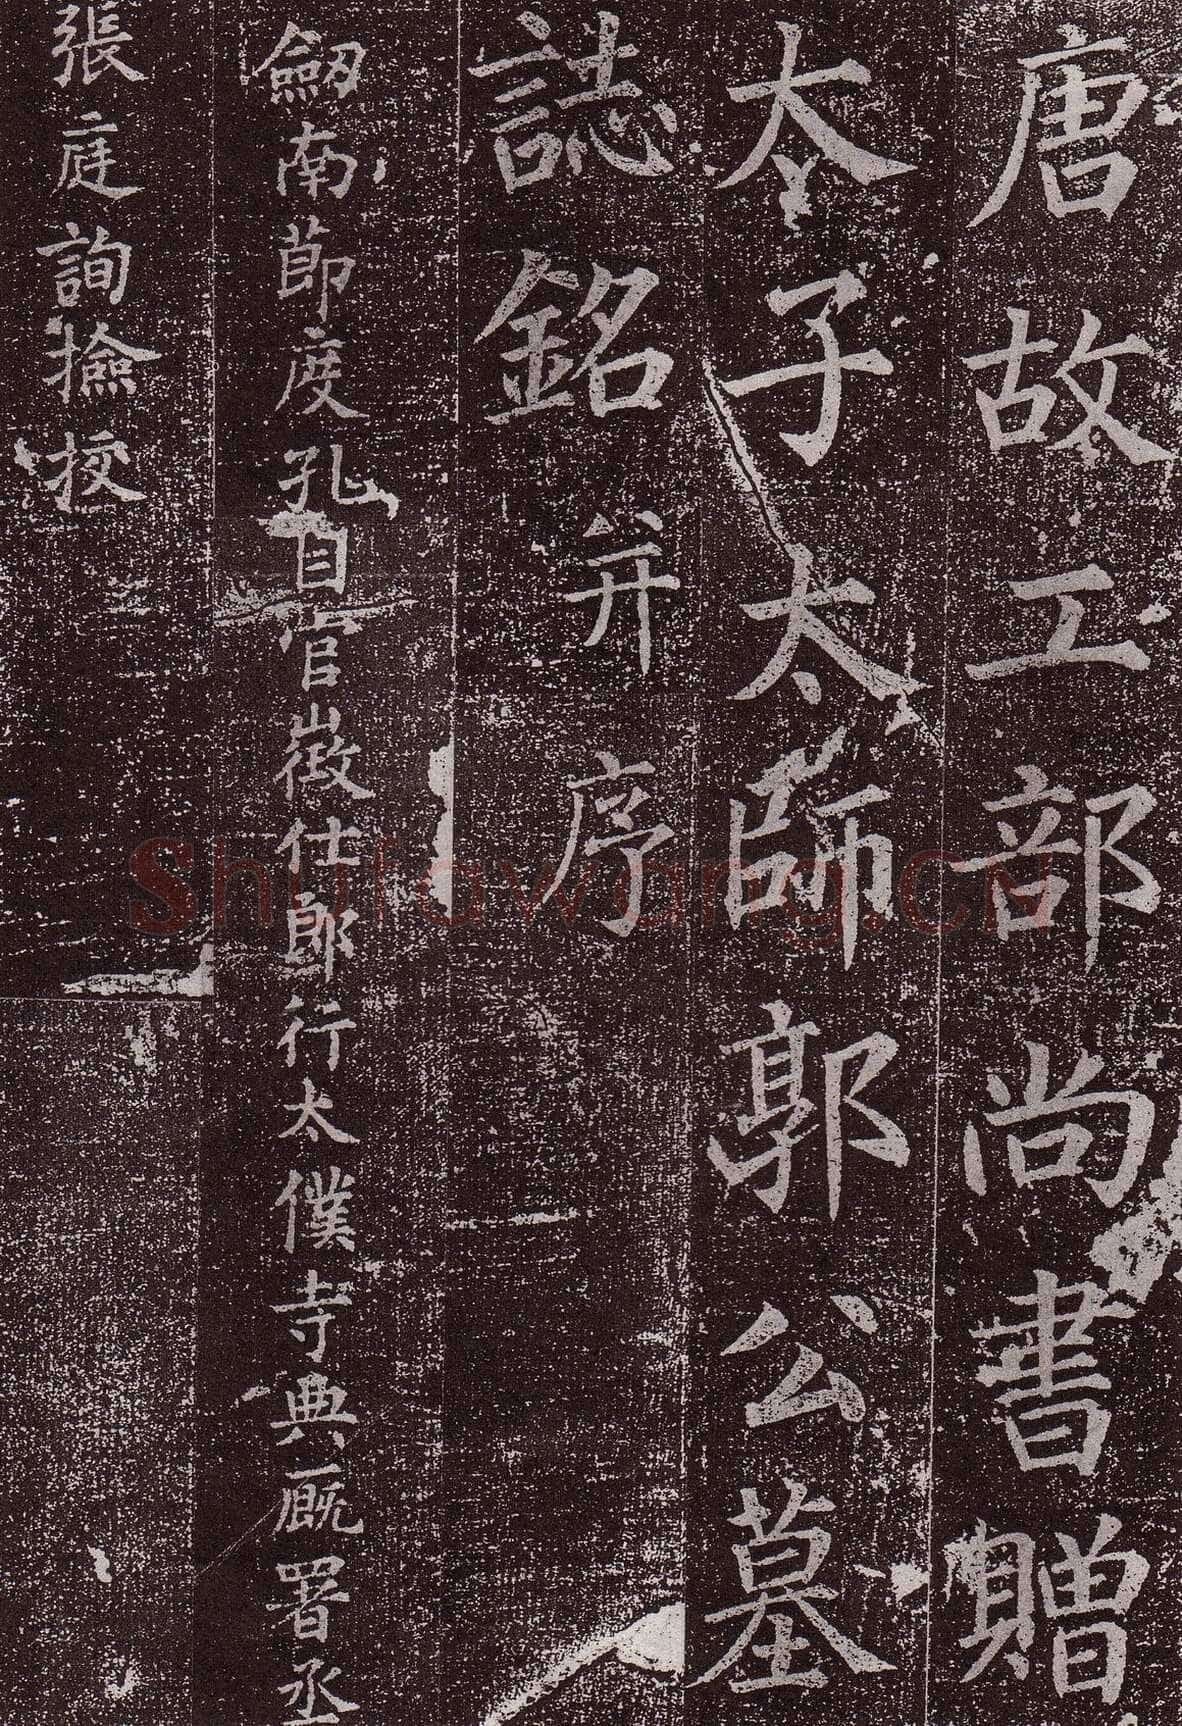 唐故工部尚書贈
太子太師郭公墓
誌銘并序
劒南節度孔目官徵仕郎行太僕寺典厩署丞
張庭詢撿挍
Shufawang.CN